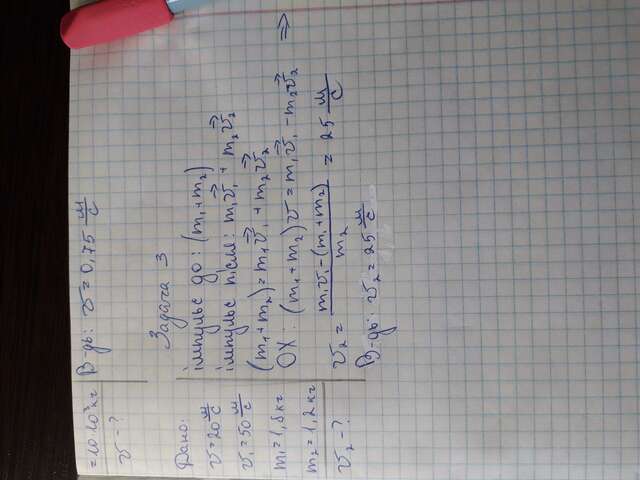 = 10·10³ кг
v - ?
В-дь: v = 0,75 м/с
Задача 3
Дано:
v = 20 м/с
v₁ = 50 м/с
m₁ = 1,8 кг
m₂ = 1,2 кг
v₂ - ?
імпульс до: (m₁+m₂)
імпульс після: m₁v⃗₁ + m₂v⃗₂
(m₁+m₂) = m₁v⃗₁ + m₂v⃗₂
OX: (m₁+m₂)v = m₁v⃗₁ - m₂v⃗₂ ⇒
v₂ = (m₁v₁-(m₁+m₂))/m₂ = 25 м/с
В-дь: v₂ = 25 м/с